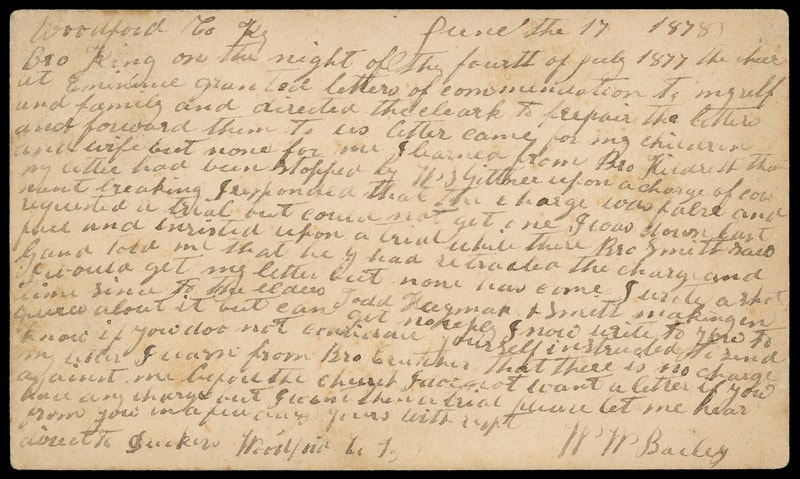 Woodford Co Ky June the 17 1878
Bro King on the night of the fourth of July 1877 the
at Eminence granted letters of commendation to myself
and family and directed the cleark to prepair the letters
and forward them to us letter came for my children
and wife but none for me I learned from Bro that
my letter had been stopped by upon a charge of cov
nant breaking I responded that the charge was false and
requested a trial but could not get one I was down last
fall and insisted upon a trial while there Bro Smith
and told me that he had retracted the charge and
I would get my letter but none has come I wrote a short
time since to the elders Todd & Smith making en
quires about it but can get no reply I now write to you to
know if you doo not consider yourself instructed to send
my letter I learn from Bro that there is no charge
against me before the church I do not want a letter if you
have any charge but I want then a trial please let me hear
from you in a few days yours with respt
direct to Woodford Co Ky W W Bailey